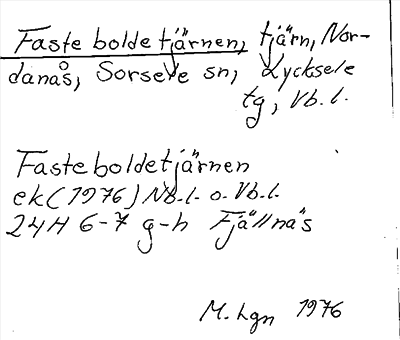 Fasteboldetjärnen, tjärn, Nor-
danås, Sorsele sn, Lycksele
tg, Vb.l.
Fasteboldetjärnen
ek (1976) Nb.l. o. Vb.l.
24H 6-7 g-h Fjällnäs
M. Lgn 1976